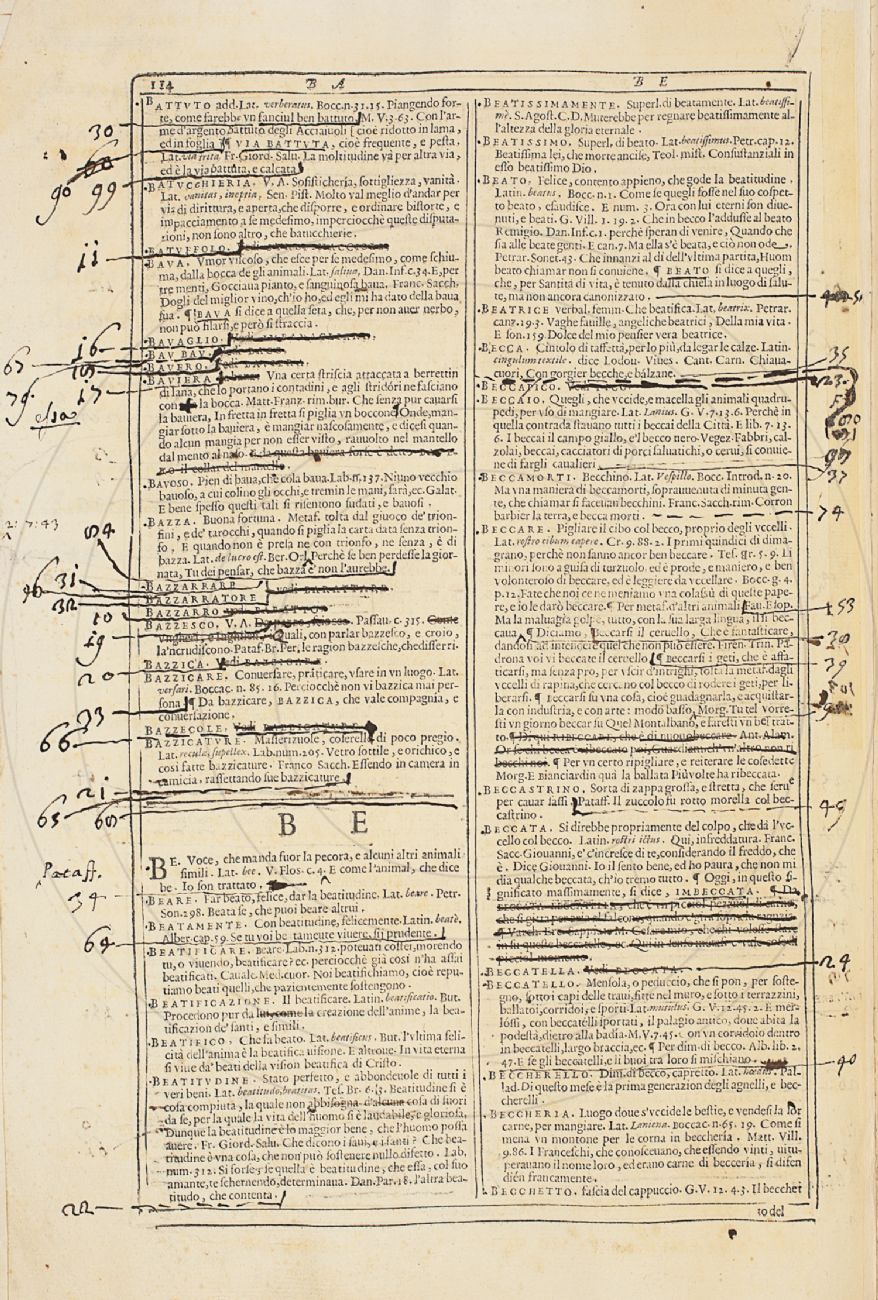 114 B A
BATTVTO add. Lat. verberatus. Bocc. n. 31. 15. Piangendo for-
te, come sarebbe vn fanciul ben battuto. M. V. 3. 63. Con l'ar-
me d'argento battuto degli Acciaiuoli [cioè ridotto in lama,
ed in foglia] ¶ VIA BATTVTA, cioè frequente, e pesta.
Lat. via trita. Fr. Giord. Salu. La moltitudine và per altra via,
ed è la via battuta, e calcata
BATVCCHIERIA. V. A. Sofisticheria, sottigliezza, vanità.
Lat. vanitas, ineptia, Sen. Pist. Molto val meglio d'andar per
via di dirittura, e aperta, che disporre, e ordinare bistorte, e
impacciamento a se medesimo, imperciocchè queste disputa-
zioni, non sono altro, che batucchierie.
BATVFFOLO.
BAVA. Vmor viscoso, che esce per se medesimo, come schiu-
ma, dalla bocca de gli animali. Lat. saliua, Dan. Inf. c. 34. E, per
tre menti, Gocciaua pianto, e sanguinosa baua. Franc. Sacch.
Dogli del miglior vino, ch'io ho, ed egli mi ha dato della baua
sua. ¶ BAVA si dice a quella seta, che, per non auer nerbo,
non può filarsi, e però si straccia.
BAVAGLIO.
BAV BAV.
BAVERO.
BAVIERA Vna certa striscia attaccata a berrettin
di lana, che lo portano i contadini, e agli stridori ne fasciano
con la bocca. Matt. Franz. rim. bur. Che senza pur cauarsi
la bauiera, In fretta in fretta si piglia vn boccone. Onde, man-
giar sotto la bauiera, è mangiar nascosamente, e dicesi quan-
do alcun mangia per non esser visto, rauuolto nel mantello
dal mento al naso.
BAVOSO. Pien di baua, che cola baua. Lab. n. 137. Niuno vecchio
bauoso, a cui colino gli occhi, e tremin le mani, sarà, ec. Galat.
E bene spesso questi tali si risentono sudati, e bauosi.
BAZZA. Buona fortuna. Metaf. tolta dal giuoco de' trion-
fini, e de' tarocchi, quando si piglia la carta data senza trion-
fo. E quando non è presa ne con trionfo, ne senza, è di
bazza. Lat. de lucro est. Ber. O. Perchè se ben perdesse la gior-
nata, Tu dei pensar, che bazza e' non l'aurebbe.
BAZZARRARE
BAZZARRATORE
BAZZARRO
BAZZESCO. V. A. Passau. c. 315.
Quali, con parlar bazzesco, e croio,
la'ncrudiscono. Pataf. Br. Per, le ragion bazzesche, che differri.
BAZZICA.
BAZZICARE. Conuersare, praticare, vsare in vn luogo. Lat.
versari. Boccac. n. 85. 16. Perciocchè non vi bazzica mai per-
sona ¶ Da bazzicare, BAZZICA, che vale compagnia, e
conuersazione.
BAZZECOLE.
BAZZICATVRE. Masserizuole, coserelle di poco pregio.
Lat. reculae, supellex. Lab. num. 205. Vetro sottile, e orichico, e
così fatte bazzicature. Franco Sacch. Essendo in camera in
camicia, rassettando sue bazzicature
B E
BE. Voce, che manda fuor la pecora, e alcuni altri animali
simili. Lat. bee. V. Flos. c. 4. E come l'animal, che dice
be. Io son trattato.
BEARE. Far beato, felice, dar la beatitudine. Lat. beare. Petr.
Son. 298. Beata se, che puoi beare altrui.
BEATAMENTE. Con beatitudine, felicemente. Latin. beatè,
Alber. cap. 59. Se tu voi beatamente viuere, sij prudente.
BEATIFICARE. Beare. Lab. n. 312. poteuati costei, morendo
tu, o viuendo, beatificare? ec. perciocchè già così n'ha assai
beatificati. Caualc. Med. cuor. Noi beatifichiamo, cioè repu-
tiamo beati quelli, che pazientemente sostengono.
BEATIFICAZIONE. Il beatificare. Latin. beatificatio. But.
Procedono pur da lui, come la creazione dell'anime, la bea-
tificazion de' santi, e simili.
BEATIFICO. Che fa beato. Lat. beatificus. But. l'vltima feli-
cità dell'anima è la beatifica visione. E altroue. In vita eterna
si viue da' beati della vision beatifica di Cristo.
BEATITVDINE. Stato perfetto, e abbondeuole di tutti i
veri beni. Lat. beatitudo, beatitas. Tes. Br. 6. 13. Beatitudine si è
cosa compiuta, la quale non abbisogna d'alcuna cosa di fuori
da se, per la quale la vita dell'huomo si è laudabile, e gloriosa,
Dunque la beatitudine è lo maggior bene, che l'huomo possa
auere. Fr. Giord. Salu. Che dicono i saui, e i santi? Che bea-
titudine è vna cosa, che non può sostenere nullo difetto. Lab.
num. 312. Si forse, se quella è beatitudine, che essa, col suo
amante, te schernendo, determinaua. Dan. Par. 18. l'altra bea-
titudo, che contenta.
B E
BEATISSIMAMENTE. Superl. di beatamente. Lat. beatissi-
mè. S. Agost. C. D. Muterebbe per regnare beatissimamente al-
l'altezza della gloria eternale.
BEATISSIMO. Superl. di beato. Lat. beatissimus. Petr. cap. 12.
Beatissima lei, che morte ancise, Teol. mist. Consustanziali in
esso beatissimo Dio.
BEATO. Felice, contento appieno, che gode la beatitudine.
Latin. beatus. Bocc. n. 1. Come se quegli fosse nel suo cospet-
to beato, esaudisce. E num. 3. Ora con lui eterni son diue-
nuti, e beati. G. Vill. 1. 19. 2. Che in becco l'addusse al beato
Remigio. Dan. Inf. c. 1. perchè speran di venire, Quando che
sia alle beate genti. E can. 7. Ma ella s'è beata, e ciò non ode.
Petrar. Sonet. 43. Che innanzi al dì dell'vltima partita, Huom
beato chiamar non si conuiene. ¶ BEATO si dice a quegli,
che, per Santità di vita, è tenuto dalla chiesa in luogo di salu-
te, ma non ancora canonizzato.
BEATRICE verbal. femm. Che beatifica. Lat. beatrix. Petrar.
canz. 19. 3. Vaghe fauille, angeliche beatrici, Della mia vita.
E son. 159. Dolce del mio pensier vera beatrice.
BECCA. Cintolo di taffettà, per lo più, da legar le calze. Latin.
cingulum textile. dice Lodou. Viues. Cant. Carn. Chiaua-
cuori, Con gorgier becche, e balzane.
BECCAFICO.
BECCAIO. Quegli, che vccide, e macella gli animali quadru-
pedi, per vso di mangiare. Lat. Lanius. G. V. 7. 13. 6. Perchè in
quella contrada stauano tutti i beccai della Città. E lib. 7. 13.
6. I beccai il campo giallo, e'l becco nero. Vegez. Fabbri, cal-
zolai, beccai, cacciatori di porci saluatichi, o cerui, si conuie-
ne di fargli caualieri.
BECCAMORTI. Becchino. Lat. Vespillo. Bocc. Introd. n. 20.
Ma vna maniera di beccamorti, soprauuenuta di minuta gen-
te, che chiamar si faceuan becchini. Franc. Sacch. rim. Corron
barbier la terra, e becca morti.
BECCARE. Pigliare il cibo col becco, proprio degli vccelli.
Lat. rostro cibum capere. Cr. 9. 88. 2. I primi quindici dì dima-
grano, perchè non sanno ancor ben beccare. Tes. gr. 5. 9. Li
minori sono a guisa di turzuolo, ed è prode, e maniero, e ben
volonteroso di beccare, ed è leggiere da vccellare. Bocc. g. 4.
p. 12. Fate che noi ce ne meniamo vna colasù di queste pape-
re, e io le darò beccare. ¶ Per metaf. d'altri animali. Fau. Esop.
Ma la maluagia golpe, tutto, con la sua larga lingua, si si bec-
caua ¶ Diciamo, Beccarsi il ceruello, Che è fantasticare,
dandosi ad intendere quel che non può essere. Firen. Trin. Pa-
drona voi vi beccate il ceruello. ¶ Beccarsi i geti, che è affa-
ticarsi, ma senza pro, per vscir d'intrighi, tolta la metaf. dagli
vccelli di rapina, che cercano col becco di rodere i geti, per li-
berarsi. ¶ Beccarsi su vna cosa, cioè guadagnarla, e acquistar-
la con industria, e con arte: modo basso, Morg. Tu tel vorre-
sti vn giorno beccar su Quel Montalbano, e faresti vn bel trat-
to.
¶ Per vn certo ripigliare, e reiterare le cose dette
Morg. E Bianciardin quà la ballata Più volte ha ribeccata.
BECCASTRINO. Sorta di zappa grossa, e stretta, che serue
per cauar sassi. Pataff. Il zuccolo fu rotto morella col bec-
castrino.
BECCATA. Si direbbe propriamente del colpo, che dà l'vc-
cello col becco. Latin. rostri ictus. Qui, infreddatura. Franc.
Sacc. Giouanni, e' c'incresce di te, considerando il freddo, che
è. Dice Giouanni. Io il sento bene, ed ho paura, che non mi
dia qualche beccata, ch'io tremo tutto. ¶ Oggi, in questo si-
gnificato massimamente, si dice, IMBECCATA. ¶ Da
BECCATELLA.
BECCATELLO. Mensola, o peduccio, che si pon, per soste-
gno, sotto i capi delle traui, fitte nel muro, e sotto i terrazzini,
ballatoi, corridoi, e sporti. Lat. mutulus. G. V. 12. 45. 2. E mer-
lossi, con beccatelli sportati, il palagio antico, doue abita la
podestà, dietro alla badia. M. V. 7. 45. con vn corridoio dentro
in beccatelli, largo braccia, ec. ¶ Per dim. di becco. Alb. lib. 2.
47. E se gli beccatelli, e li buoi tra loro si mischiano.
BECCHERELLO. Dim. di becco, capretto. Lat. hoedus. Pal-
lad. Di questo mese è la prima generazion degli agnelli, e bec-
cherelli.
BECCHERIA. Luogo doue s'vccide le bestie, e vendesi la lor
carne, per mangiare. Lat. Laniena. Boccac. n. 65. 19. Come si
mena vn montone per le corna in beccheria. Matt. Vill.
9. 86. I Franceschi, che conosceuano, che essendo vinti, uitu-
perauano il nome loro, ed erano carne di becceria, si difen
dien francamente.
BECCHETTO. fascia del cappuccio. G. V. 12. 4. 3. Il becchet
to del
30
90
99
11
16
17
54
31
32
10
19
20
33
66
21
65
Pataff.
34
64
22
35
23.
37
74
153
38
39
49
24
40